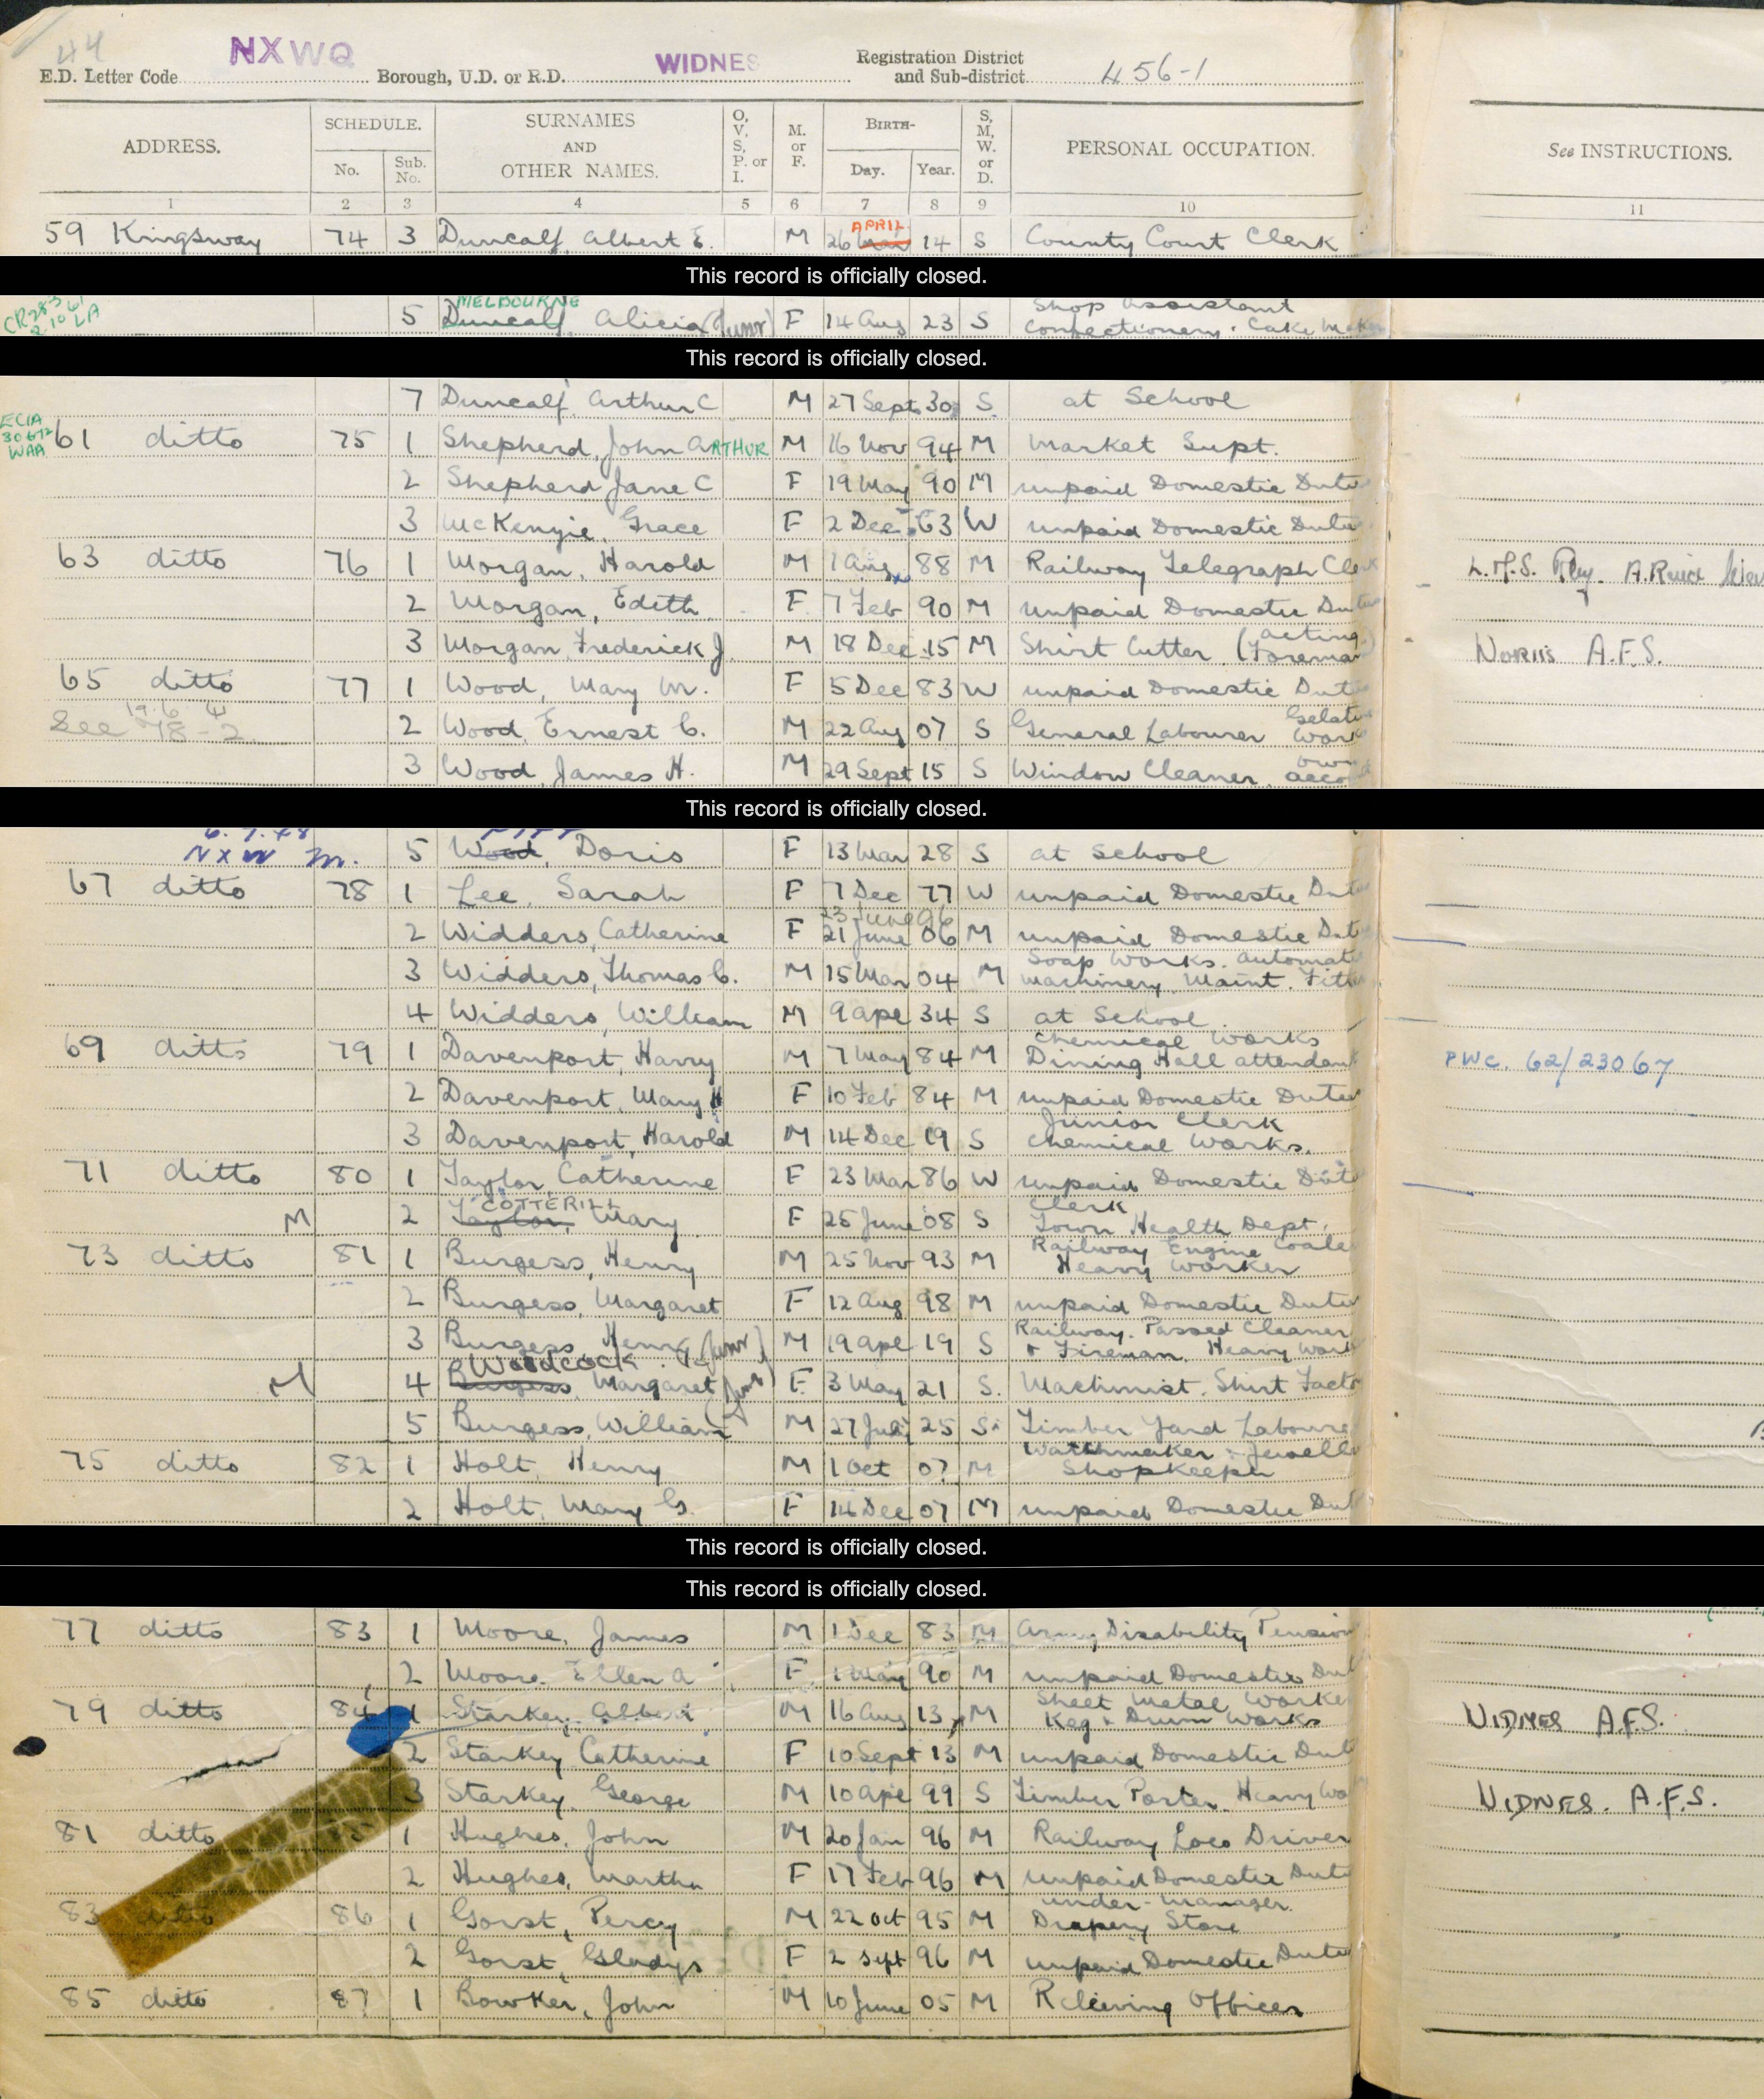 44
NXWQ
WIDNES
E.D. Letter Code Borough, U.D. or R.D. Registration District and Sub-district 456-1
ADDRESS. SCHEDULE. No. Sub. No. SURNAMES AND OTHER NAMES. O, V, S, P. or I. M. or F. BIRTH- Day. Year. S, M, W. or D. PERSONAL OCCUPATION. See INSTRUCTIONS.
1 2 3 4 5 6 7 8 9 10 11
APRIL
59 Kingsway 74 3 Duncalf Albert E. M 26 14 S County Court Clerk
This record is officially closed.
MELBOURNE
5 Duncalf Alicia (Junr) F 14 Aug 23 S Shop Assistant Confectionery. Cake
This record is officially closed.
7 Duncalf Arthur C M 27 Sept 30 S at School
61 ditto 75 1 Shepherd, John ARTHUR M 16 Nov 94 M Market Supt.
2 Shepherd Jane C F 19 May 90 M unpaid Domestic Dutie
3 McKenzie, Grace F 2 Dec 63 W unpaid Domestic Dutie
63 ditto 76 1 Morgan, Harold M 1 Aug 88 M Railway Telegraph Clerk L.M.S. Rly.
2 Morgan, Edith F 7 Feb 90 M unpaid Domestic Dutie
3 Morgan, Frederick J. M 18 Dec 15 M Shirt Cutter (acting Foreman) A.F.S.
65 ditto 77 1 Wood, Mary M. F 5 Dec 83 W unpaid Domestic Dutie
See 78-2
2 Wood, Ernest C. M 22 Aug 07 S General Labourer Gelatine Work
3 Wood, James H. M 29 Sept 15 S Window Cleaner own acco
This record is officially closed.
NXW M. 5 Wood, Doris F 13 Mar 28 S at School
67 ditto 78 1 Lee, Sarah F 7 Dec 77 W unpaid Domestic Dut
23 June 06
2 Widders, Catherine F 21 June 06 M unpaid Domestic Dut
3 Widders, Thomas C. M 15 Mar 04 M Soap Works. Automat Machinery Maint. Fitte
4 Widders, William M 9 Ape 34 S at School
69 ditto 79 1 Davenport, Harry M 7 May 84 M Chemical Works Dining Hall attendant PWC. 62/23067
2 Davenport, Mary H F 10 Feb 84 M unpaid Domestic Dutie
3 Davenport, Harold M 14 Dec 19 S Junior Clerk Chemical Works.
71 ditto 80 1 Taylor, Catherine F 23 Mar 86 W unpaid Domestic Dute
COTTERILL
M 2 Taylor, Mary F 25 June 08 S Clerk Town Health Dept.
73 ditto 81 1 Burgess, Henry M 25 Nov 93 M Railway Engine Coale Heavy Worker
2 Burgess, Margaret F 12 Aug 98 M unpaid Domestic Dutie
3 Burgess Henry (Junr) M 19 Ape 19 S Railway. Passed Cleaner & Fireman. Heavy Work
Woodcock
M 4 Burgess, Margaret (Junr) F 3 May 21 S. Machinist. Shirt Facto
5 Burgess, William M 27 July 25 S. Timber Yard Laboure
75 ditto 82 1 Holt, Henry M 1 Oct 07 M Watchmaker & Jewelle Shopkeeper
2 Holt, Mary G. F 14 Dec 07 M unpaid Domestic Dut
This record is officially closed.
This record is officially closed.
77 ditto 83 1 Moore, James M 1 Dec 83 M Army Disability Pension
2 Moore, Ellen A F 1 May 90 M unpaid Domestic Dut
79 ditto 84 1 Starkey, Albert M 16 Aug 13 M Sheet Metal Worke Keg & Drum Works WIDNES A.F.S.
2 Starkey Catherine F 10 Sept 13 M unpaid Domestic Dut
3 Starkey, George M 10 Ape 99 S Timber Porter. Heavy Wo WIDNES. A.F.S.
81 ditto 85 1 Hughes, John M 20 Jan 96 M Railway Loco Driver
2 Hughes, Martha F 17 Feb 96 M unpaid Domestic Duti
83 ditto 86 1 Gorst, Percy M 22 Oct 95 M Under-Manager. Drapery Store
2 Gorst, Gladys F 2 Sept 96 M unpaid Domestic Dutie
85 ditto 87 1 Bowker, John M 10 June 05 M Relieving Officer